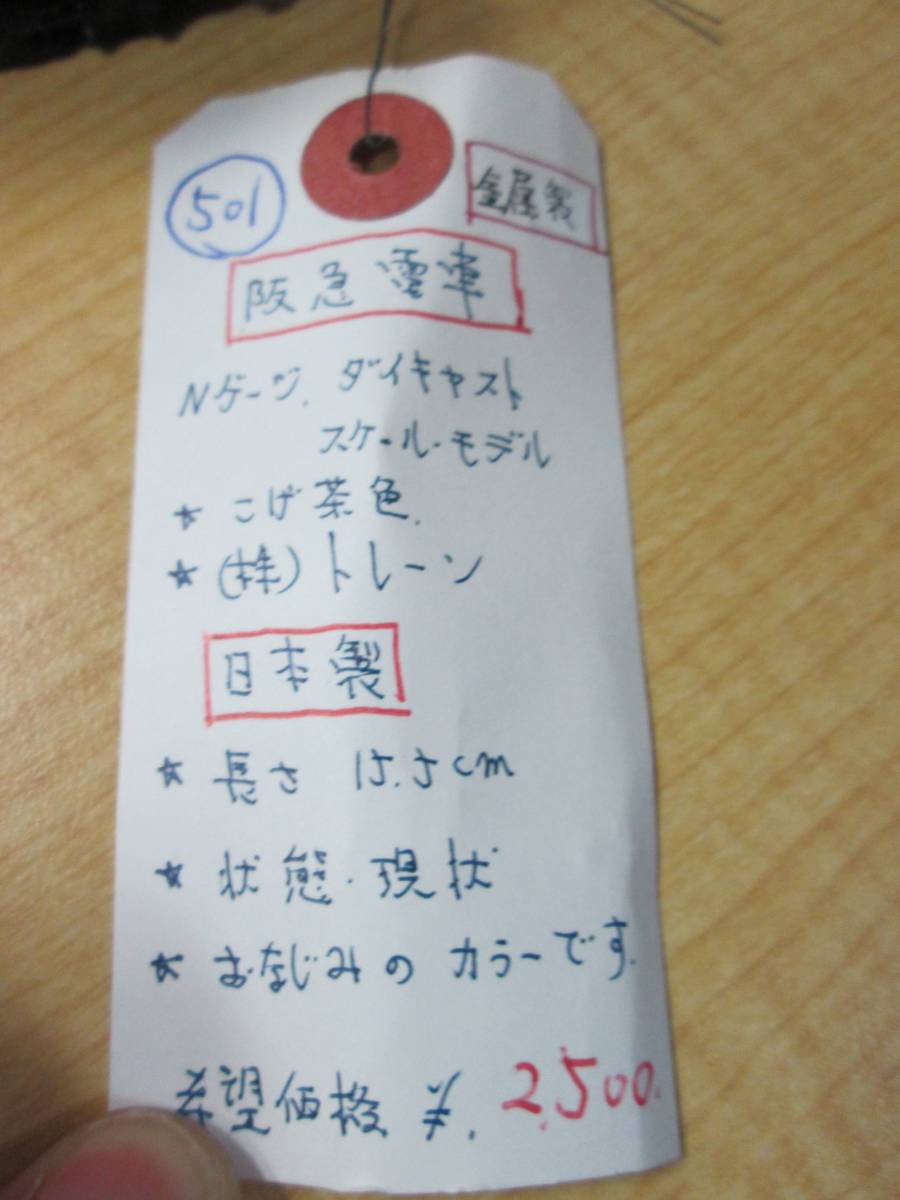 501
金属製
阪急電車
Nゲージ. ダイキャスト
スケール・モデル
★ こげ茶色.
★ (株)トレーン
日本製
★ 長さ 15.5cm
★ 状態・現状
★ おなじみの カラーです.
希望価格 ¥. 2,500.